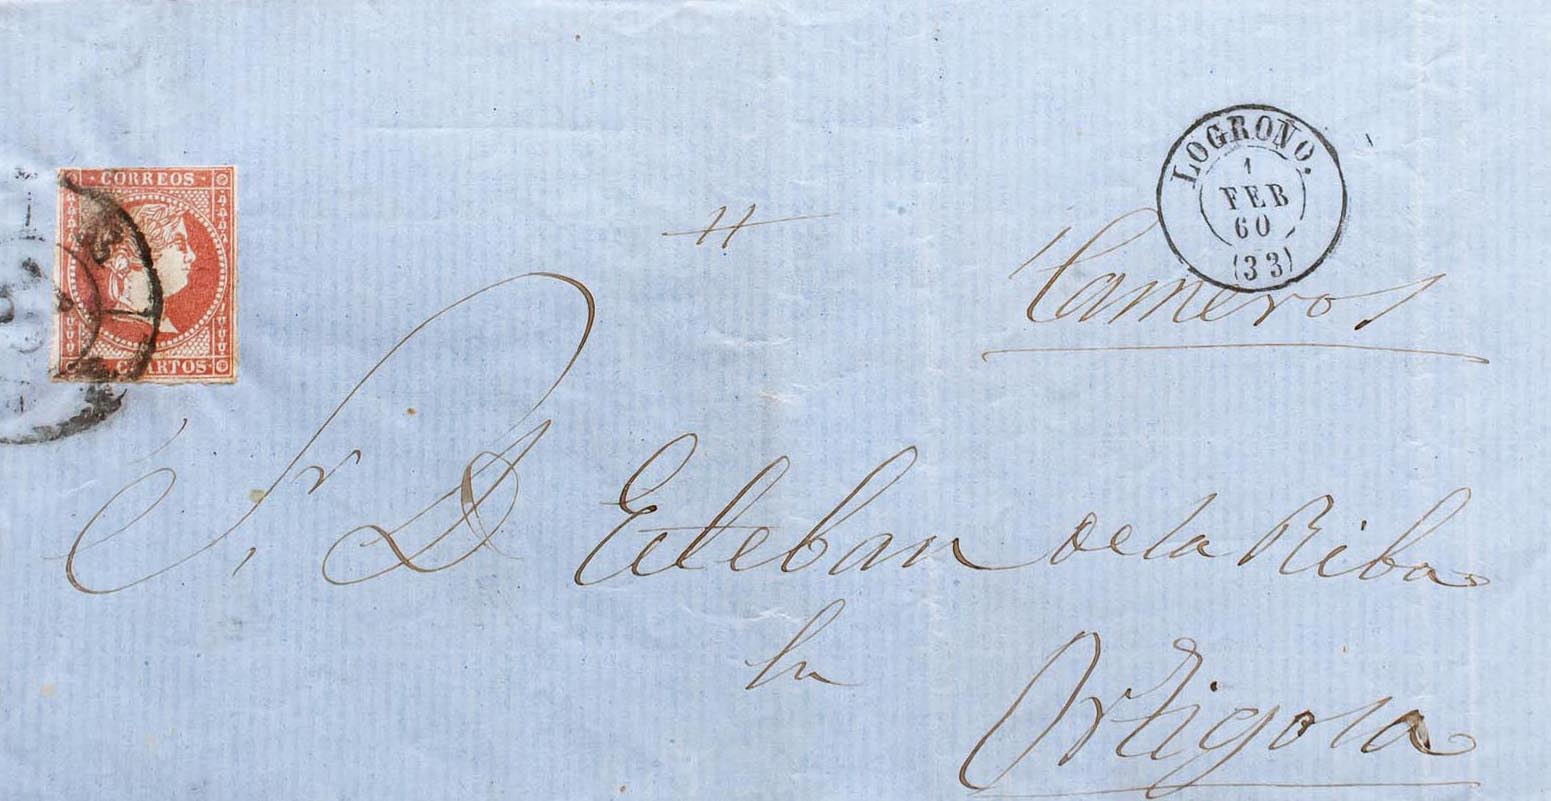 CORREOS
CUARTOS
LOGROÑO.
1
FEB
60
(33)
Cameros
Sr. D Esteban de la Riba
En
Ortigosa